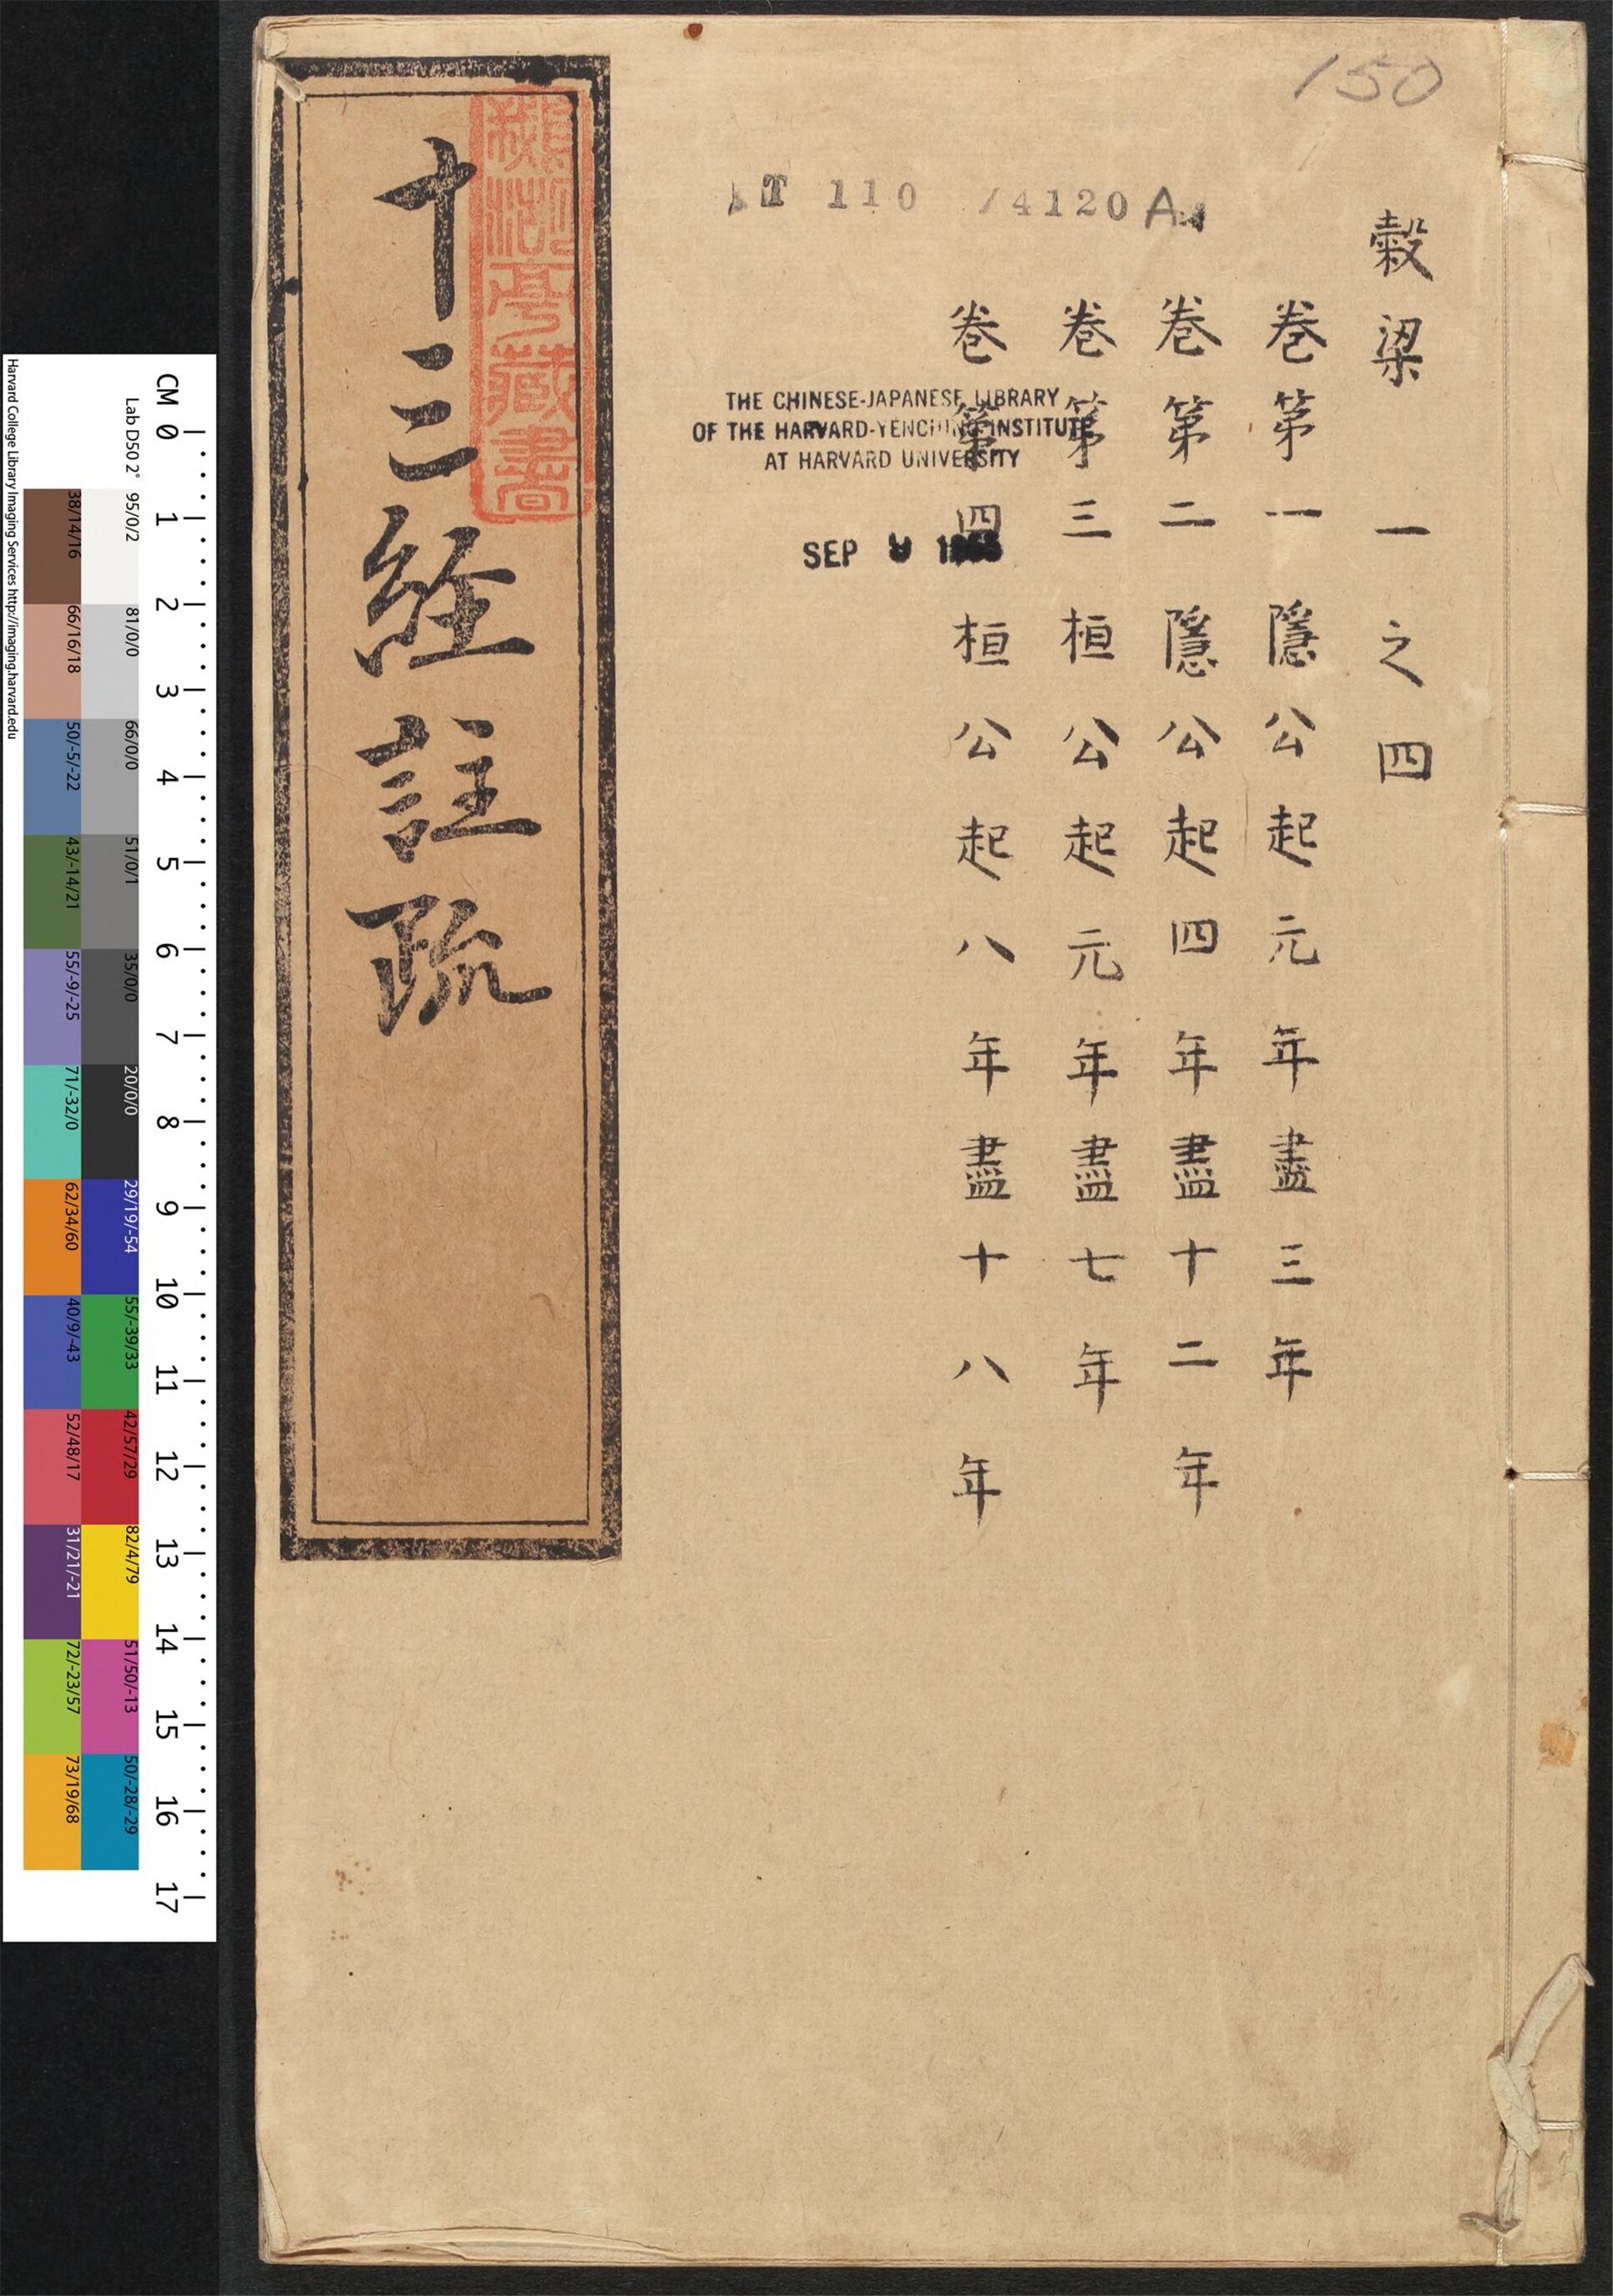 150
T 110 /4120 A
穀梁 一之四
卷第一 隱公起元年盡三年
卷第二 隱公起四年盡十二年
卷第三 桓公起元年盡七年
卷第四 桓公起八年盡十八年
THE CHINESE-JAPANESE LIBRARY
OF THE HARVARD-YENCHING INSTITUTE
AT HARVARD UNIVERSITY
SEP
十三經註疏
亭藏書
Harvard College Library Imaging Services http://imaging.harvard.edu
Lab D50 2°
CM 0 1 2 3 4 5 6 7 8 9 10 11 12 13 14 15 16 17
95/0/2
81/0/0
66/0/0
51/0/1
35/0/0
20/0/0
29/19/-54
55/-39/33
42/57/29
82/4/79
51/50/-13
50/-28/-29
38/14/16
66/16/18
50/-5/-22
43/-14/21
55/-9/-25
71/-32/0
62/34/60
40/9/-43
52/48/17
31/21/-21
72/-23/57
73/19/68